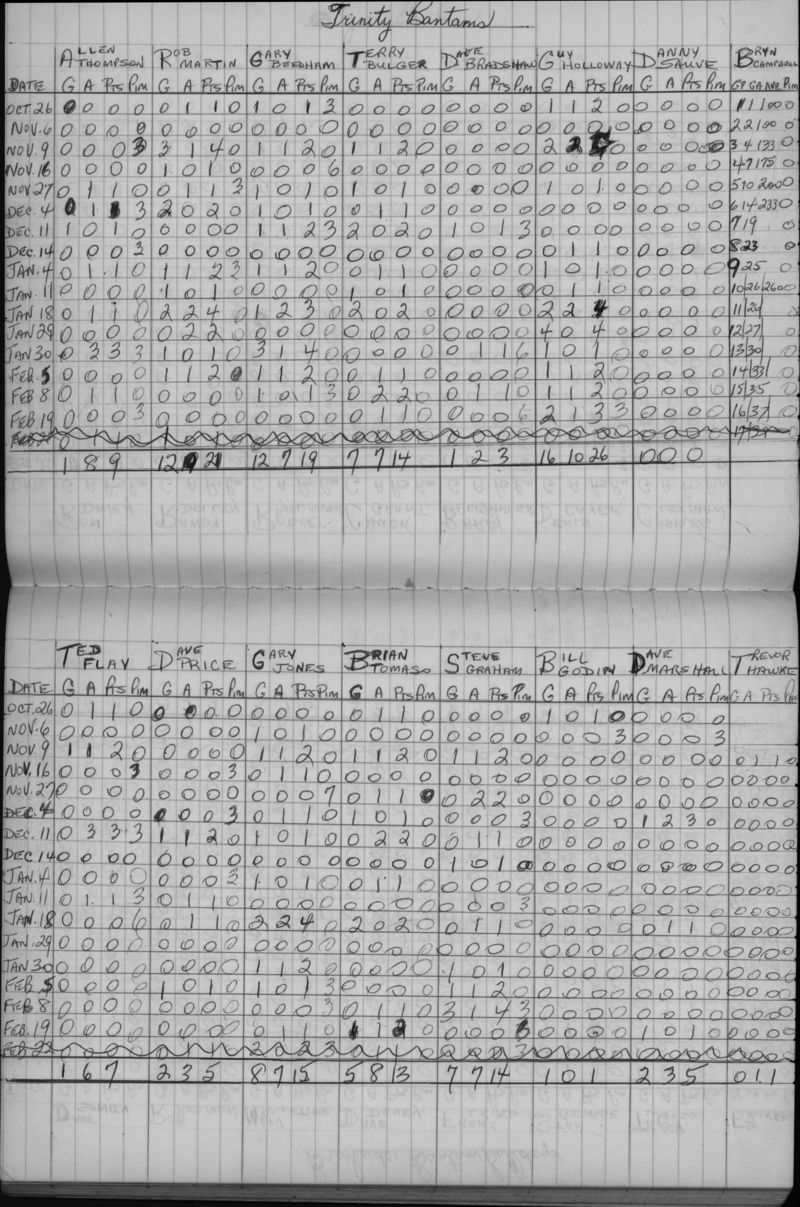 Trinity Bantams
ALLEN THOMPSON ROB MARTIN GARY BEEDHAM TERRY BULGER DAVE BRADSHAW GUY HOLLOWAY DANNY SAUVE BRYN CAMPBELL
DATE G A Pts Pim G A Pts Pim G A Pts Pim G A Pts Pim G A Pts Pim G A Pts Pim G A Pts Pim GP GA AVE Pim
OCT.26 0 0 0 0 0 1 1 0 1 0 1 3 0 0 0 0 0 0 0 0 1 1 2 0 0 0 0 0 1 1 100 0
NOV.6 0 0 0 0 0 0 0 0 0 0 0 0 0 0 0 0 0 0 0 0 0 0 0 0 0 0 0 0 2 2 100 0
NOV.9 0 0 0 3 3 1 4 0 1 1 2 0 1 1 2 0 0 0 0 0 2 2 0 0 0 0 0 3 4 133 0
NOV.16 0 0 0 0 1 0 1 0 0 0 0 6 0 0 0 0 0 0 0 0 0 0 0 0 0 0 0 0 4 7 175 0
NOV 27 0 1 1 0 0 1 1 3 1 0 1 0 1 0 1 0 0 0 0 0 1 0 1 0 0 0 0 0 5 10 200 0
DEC.4 0 1 1 3 2 0 2 0 1 0 1 0 0 1 1 0 0 0 0 0 0 0 0 0 0 0 0 0 6 14 233 0
DEC.11 1 0 1 0 0 0 0 0 1 1 2 3 2 0 2 0 1 0 1 3 0 0 0 0 0 0 0 0 7 19 0
DEC.14 0 0 0 3 0 0 0 0 0 0 0 0 0 0 0 0 0 0 0 0 0 1 1 0 0 0 0 0 8 23 0
JAN.4 0 1 1 0 1 1 2 3 1 1 2 0 0 1 1 0 0 0 0 0 1 0 1 0 0 0 0 0 9 25 0
JAN.11 0 0 0 0 1 0 1 0 0 0 0 0 1 0 1 0 0 0 0 0 0 1 1 0 0 0 0 0 10 26 260 0
JAN 18 0 1 1 0 2 2 4 0 1 2 3 0 2 0 2 0 0 0 0 0 2 2 4 0 0 0 0 11 26 0
JAN 29 0 0 0 0 0 2 2 0 0 0 0 0 0 0 0 0 0 0 0 0 4 0 4 0 0 0 0 0 12 27 0
JAN 30 0 3 3 3 1 0 1 0 3 1 4 0 0 0 0 0 0 1 1 6 1 0 1 0 0 0 0 0 13 30 0
FEB.5 0 0 0 0 1 1 2 0 1 1 2 0 0 1 1 0 0 0 0 0 1 1 2 0 0 0 0 0 14 33 0
FEB 8 0 1 1 0 0 0 0 0 1 0 1 3 0 2 2 0 0 1 1 0 1 1 2 0 0 0 0 0 15 35 0
FEB 19 0 0 0 3 0 0 0 0 0 0 0 0 0 1 1 0 0 0 0 6 2 1 3 3 0 0 0 0 16 37 0
1 8 9 12 9 21 12 7 19 7 7 14 1 2 3 16 10 26 0 0 0
TED FLAY DAVE PRICE GARY JONES BRIAN TOMASO STEVE GRAHAM BILL GODIN DAVE MARSHALL TREVOR HAWKE
DATE G A Pts Pim G A Pts Pim G A Pts Pim G A Pts Pim G A Pts Pim G A Pts Pim G A Pts Pim G A Pts Pim
OCT.26 0 1 1 0 0 0 0 0 0 0 0 0 0 1 1 0 0 0 0 0 1 0 1 0 0 0 0 0
NOV.6 0 0 0 0 0 0 0 0 1 0 1 0 0 0 0 0 0 0 0 0 0 0 0 3 0 0 0 3
NOV.9 1 1 2 0 0 0 0 0 1 1 2 0 1 1 2 0 1 1 2 0 0 0 0 0 0 0 0 0 0 1 1 0
NOV.16 0 0 0 3 0 0 0 3 0 1 1 0 0 0 0 0 0 0 0 0 0 0 0 0 0 0 0 0 0 0 0 0
NOV.27 0 0 0 0 0 0 0 0 0 0 0 7 0 1 1 0 0 2 2 0 0 0 0 0 0 0 0 0 0 0 0 0
DEC.4 0 0 0 0 0 0 0 3 0 1 1 0 1 0 1 0 0 0 0 3 0 0 0 0 1 2 3 0 0 0 0 0
DEC.11 0 3 3 3 1 1 2 0 1 0 1 0 0 2 2 0 0 1 1 0 0 0 0 0 0 0 0 0 0 0 0 0
DEC 14 0 0 0 0 0 0 0 0 0 0 0 0 0 0 0 0 1 0 1 0 0 0 0 0 0 0 0 0 0 0 0 0
JAN.4 0 0 0 0 0 0 0 3 1 0 1 0 0 1 1 0 0 0 0 0 0 0 0 0 0 0 0 0 0 0 0 0
JAN.11 0 1 1 3 0 1 1 0 0 0 0 0 0 0 0 0 0 0 0 3 0 0 0 0 0 0 0 0 0 0 0 0
JAN.18 0 0 0 6 0 1 1 0 2 2 4 0 2 0 2 0 0 1 1 0 0 0 0 0 0 1 1 0 0 0 0 0
JAN.29 0 0 0 0 0 0 0 0 0 0 0 0 0 0 0 0 0 0 0 0 0 0 0 0 0 0 0 0 0 0 0 0
JAN 30 0 0 0 0 0 0 0 0 1 1 2 0 0 0 0 0 1 0 1 0 0 0 0 0 0 0 0 0 0 0 0 0
FEB 5 0 0 0 0 1 0 1 0 1 0 1 3 0 0 0 0 1 1 2 0 0 0 0 0 0 0 0 0 0 0 0 0
FEB 8 0 0 0 0 0 0 0 0 0 0 0 3 0 1 1 0 3 1 4 3 0 0 0 0 0 0 0 0 0 0 0 0
FEB.19 0 0 0 0 0 0 0 0 0 1 1 0 1 1 2 0 0 0 0 3 0 0 0 0 1 0 1 0 0 0 0 0
FEB 22
1 6 7 2 3 5 8 7 15 5 8 13 7 7 14 1 0 1 2 3 5 0 1 1